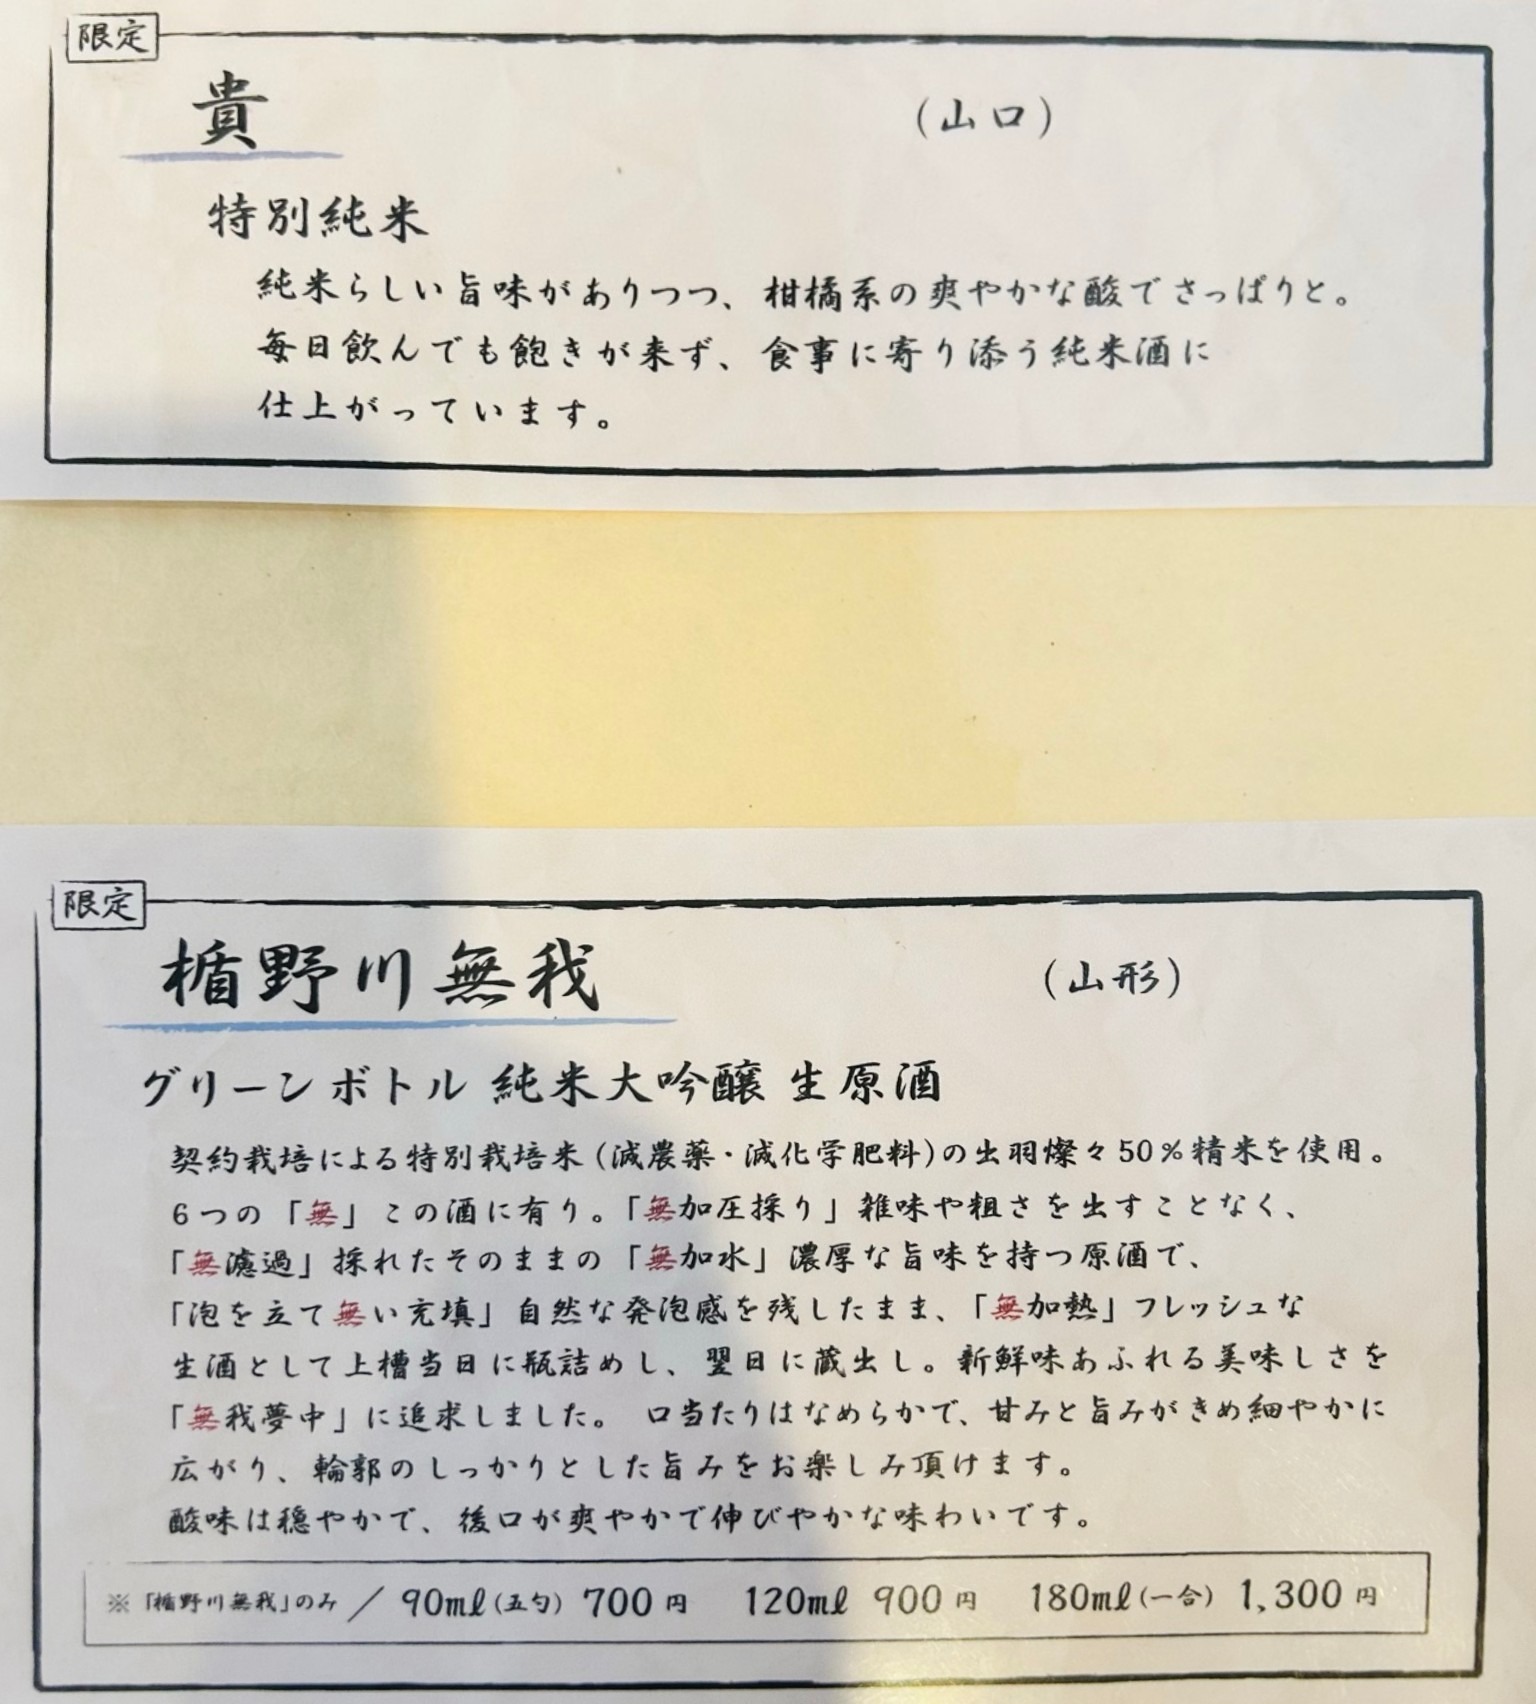 限定
貴 (山口)
特別純米
純米らしい旨味がありつつ、柑橘系の爽やかな酸でさっぱりと。
毎日飲んでも飽きが来ず、食事に寄り添う純米酒に
仕上がっています。
限定
楯野川無我 (山形)
グリーンボトル 純米大吟醸 生原酒
契約栽培による特別栽培米(減農薬・減化学肥料)の出羽燦々50%精米を使用。
6つの「無」この酒に有り。「無加圧採り」雑味や粗さを出すことなく、
「無濾過」採れたそのままの「無加水」濃厚な旨味を持つ原酒で、
「泡を立て無い充填」自然な発泡感を残したまま、「無加熱」フレッシュな
生酒として上槽当日に瓶詰めし、翌日に蔵出し。新鮮味あふれる美味しさを
「無我夢中」に追求しました。 口当たりはなめらかで、甘みと旨みがきめ細やかに
広がり、輪郭のしっかりとした旨みをお楽しみ頂けます。
酸味は穏やかで、後口が爽やかで伸びやかな味わいです。
※「楯野川無我」のみ / 90ml(五勺) 700円 120ml 900円 180ml(一合) 1,300円